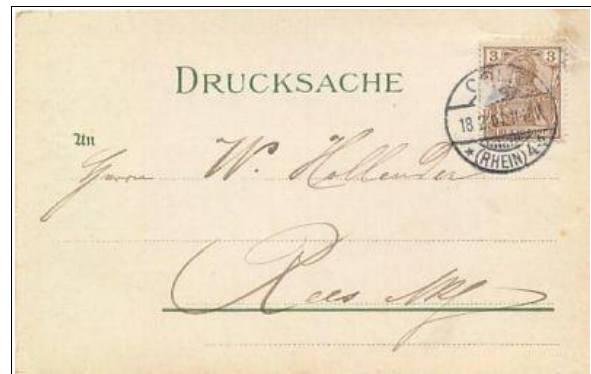 3 3
DRUCKSACHE
18.2.
* (RHEIN) 4
An
Herrn W. Hollender
Rees